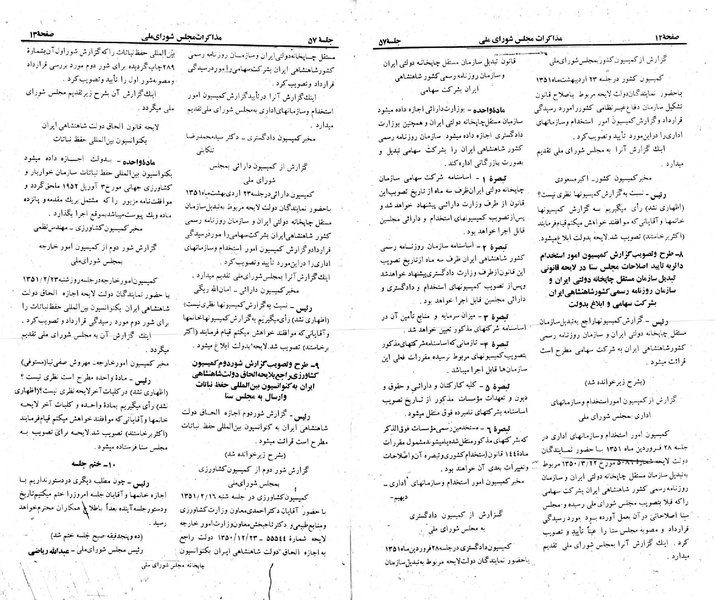 صفحه ۱۲
مذاکرات مجلس شورای ملی
جلسه ۵۷
گزارش از کمیسیون کشور به مجلس شورای ملی
کمیسیون کشور در جلسه ۲۳ اردیبهشت ماه ۱۳۵۱
با حضور نمایندگان دولت لایحه مربوط به اصلاح قانون
تشکیل سازمان دفاع غیر نظامی کشور را مورد رسیدگی
قرار داد و گزارش کمیسیون امور استخدام و سازمانهای
اداری را در این مورد تأیید و تصویب کرد.
اینک گزارش آنرا به مجلس شورای ملی تقدیم
میدارد.
مخبر کمیسیون کشور - اکبر مسعودی
رئیس - نسبت به گزارش کمیسیونها نظری نیست؟
(اظهاری نشد) رأی میگیریم به گزارش کمیسیونها
خانمها و آقایانی که موافقند خواهش میکنم قیام فرمایند
(اکثر برخاستند) تصویب شد. لایحه به دولت ابلاغ میشود.
۸- طرح و تصویب گزارش کمیسیون امور استخدام
دائر به تأیید اصلاحات مجلس سنا در لایحه قانونی
تبدیل سازمان مستقل چاپخانه دولتی ایران و
سازمان روزنامه رسمی کشور شاهنشاهی ایران به
شرکت سهامی و ابلاغ بدولت
رئیس - گزارش کمیسیونها راجع به تبدیل سازمان
مستقل چاپخانه دولتی ایران و سازمان روزنامه رسمی
کشور شاهنشاهی ایران به شرکت سهامی مطرح است
قرائت میشود.
(بشرح زیر خوانده شد)
گزارش از کمیسیون امور استخدام و سازمانهای
اداری به مجلس شورای ملی
کمیسیون امور استخدام و سازمانهای اداری در
جلسه ۲۸ فروردین ماه ۱۳۵۱ با حضور نمایندگان
دولت لایحه شماره ۵۰۸۹ مورخ ۱۳۵۰/۳/۲۲ مربوط
به تبدیل سازمان مستقل چاپخانه دولتی ایران و سازمان
روزنامه رسمی کشور شاهنشاهی ایران به شرکت سهامی
را که قبلا بتصویب مجلس شورای ملی رسیده و مجلس
سنا اصلاحاتی در آن بعمل آورده بود مورد رسیدگی
قرار داد و مصوبه مجلس سنا را عیناً تأیید و تصویب
کرد. اینک گزارش آنرا به مجلس شورای ملی تقدیم
میدارد.
قانون تبدیل سازمان مستقل چاپخانه دولتی ایران
و سازمان روزنامه رسمی کشور شاهنشاهی
ایران به شرکت سهامی
ماده واحده - بوزارت دارائی اجازه داده میشود
سازمان مستقل چاپخانه دولتی ایران و همچنین بوزارت
دادگستری اجازه داده میشود سازمان روزنامه رسمی
کشور شاهنشاهی ایران را بشرکت سهامی تبدیل و
بصورت بازرگانی اداره کند.
تبصره ۱ - اساسنامه شرکت سهامی سازمان
چاپخانه دولتی ایران ظرف سه ماه از تاریخ تصویب این
قانون از طرف وزارت دارائی پیشنهاد خواهد شد و
پس از تصویب کمیسیونهای استخدام و دارائی مجلسین
قابل اجرا خواهد بود.
تبصره ۲ - اساسنامه سازمان روزنامه رسمی
کشور شاهنشاهی ایران ظرف سه ماه از تاریخ تصویب
این قانون از طرف وزارت دادگستری پیشنهاد خواهد شد
و پس از تصویب کمیسیونهای استخدام و دادگستری و
دارائی مجلسین قابل اجرا خواهد بود.
تبصره ۳ - میزان سرمایه و منابع تأمین آن در
اساسنامه شرکتهای مذکور تعیین خواهد شد.
تبصره ۴ - تا زمانی که اساسنامه شرکتهای مذکور
بتصویب کمیسیونهای مربوط نرسیده مقررات فعلی این
سازمانها قابل اجرا میباشد.
تبصره ۵ - کلیه کارکنان و دارائی و حقوق و
دیون و تعهدات مؤسسات مذکور از تاریخ تصویب
اساسنامه بشرکتهای نامبرده فوق منتقل میشود.
تبصره ۶ - مستخدمین رسمی مؤسسات فوق الذکر
که بشرکتهای مذکور منتقل شده و یا میشوند مشمول مقررات
ماده ۱۴۴ قانون استخدام کشوری و تبصره آن و اصلاحات
و تغییرات بعدی آن خواهند بود.
مخبر کمیسیون امور استخدام و سازمانهای اداری -
دیهیم-
گزارش از کمیسیون دادگستری
به مجلس شورای ملی
کمیسیون دادگستری در جلسه ۲۸ فروردین ماه ۱۳۵۱
با حضور نمایندگان دولت لایحه مربوط به تبدیل سازمان
جلسه ۵۷
مذاکرات مجلس شورای ملی
صفحه ۱۳
مستقل چاپخانه دولتی ایران و سازمان روزنامه رسمی
کشور شاهنشاهی ایران بشرکت سهامی را مورد رسیدگی
قرار داد و تصویب کرد.
اینک گزارش آنرا در تأیید گزارش کمیسیون امور
استخدام و سازمانهای اداری به مجلس شورای ملی تقدیم
میدارد.
مخبر کمیسیون دادگستری - دکتر سید محمد رضا
تنکابنی
گزارش از کمیسیون دارائی به مجلس
شورای ملی
کمیسیون دارائی در جلسه ۲۳ اردیبهشت ماه ۱۳۵۱
با حضور نمایندگان دولت لایحه مربوط به تبدیل سازمان
مستقل چاپخانه دولتی ایران و سازمان روزنامه رسمی
کشور شاهنشاهی ایران بشرکت سهامی را مورد رسیدگی
قرار داد و گزارش کمیسیون امور استخدام و سازمانهای
اداری را در این مورد تأیید و تصویب کرد.
اینک گزارش آنرا به مجلس شورای ملی تقدیم میدارد.
مخبر کمیسیون دارائی - امان الله ریگی
رئیس - نسبت به گزارش کمیسیونها نظری نیست؟
(اظهاری نشد) رأی میگیریم به گزارش کمیسیونها خانمها
و آقایانی که موافقند خواهش میکنم قیام فرمایند (اکثر
برخاستند) تصویب شد. لایحه بدولت ابلاغ میشود.
۹- طرح و تصویب گزارش شور دوم کمیسیون
کشاورزی راجع بلایحه الحاق دولت شاهنشاهی
ایران به کنوانسیون بین المللی حفظ نباتات
و ارسال به مجلس سنا
رئیس - گزارش شور دوم اجازه الحاق دولت
شاهنشاهی ایران به کنوانسیون بین المللی حفظ نباتات
مطرح است قرائت میشود.
(بشرح زیر خوانده شد)
گزارش شور دوم از کمیسیون کشاورزی
به مجلس شورای ملی
کمیسیون کشاورزی در جلسه شنبه ۱۳۵۱/۲/۱۶
با حضور آقایان دکتر احمدی معاون وزارت کشاورزی
و منابع طبیعی و دکتر تاجبخش معاون وزارت امور خارجه
لایحه شماره ۵۵۵۴۴ - ۱۳۵۰/۱۲/۲۳ دولت راجع
به اجازه الحاق دولت شاهنشاهی ایران بکنوانسیون
بین المللی حفظ نباتات را که گزارش شور اول آن بشماره
۲۸۹ چاپ گردیده برای شور دوم مورد بررسی قرار داد
و مصوبه شور اول را تأیید و تصویب کرد.
اینک گزارش آن بشرح زیر تقدیم مجلس شورای
ملی میگردد.
لایحه قانون الحاق دولت شاهنشاهی ایران
بکنوانسیون بین المللی حفظ نباتات
ماده واحده - بدولت اجازه داده میشود
بکنوانسیون بین المللی حفظ نباتات سازمان خواربار و
کشاورزی جهانی مورخ ۳ آوریل ۱۹۵۲ ملحق گردد و
موافقتنامه مزبور را که مشتمل بریک مقدمه و پانزده
ماده و یک پیوست میباشد بموقع اجرا بگذارد.
مخبر کمیسیون کشاورزی - مهندس نظمی
گزارش شور دوم از کمیسیون امور خارجه
به مجلس شورای ملی
کمیسیون امور خارجه در جلسه روز شنبه ۱۳۵۱/۲/۲۳
با حضور نمایندگان دولت لایحه اجازه الحاق دولت
شاهنشاهی ایران بکنوانسیون بین المللی حفظ نباتات را
برای شور دوم مورد رسیدگی قرار داد و تصویب کرد.
اینک گزارش آن به مجلس شورای ملی تقدیم
میگردد.
مخبر کمیسیون امور خارجه - مهروش صفی نیا (مستوفی)
رئیس - ماده واحده مطرح است نظری نیست؟
(اظهاری نشد) در کلیات آخر لایحه نظری نیست؟ (اظهاری
نشد) رأی میگیریم بماده واحده و کلیات آخر لایحه،
خانمها و آقایانی که موافقند خواهش میکنم قیام فرمایند
(اکثر برخاستند) تصویب شد. لایحه برای تصویب به
مجلس سنا فرستاده میشود.
۱۰- ختم جلسه
رئیس - چون مطلب دیگری در دستور نداریم با
اجازه خانمها و آقایان جلسه امروز را ختم میکنیم تاریخ
و دستور جلسه آینده بعداً باطلاع همکاران محترم خواهد
رسید.
(ده و پنجدقیقه صبح جلسه ختم شد)
رئیس مجلس شورای ملی - عبدالله ریاضی
چاپخانه مجلس شورای ملی